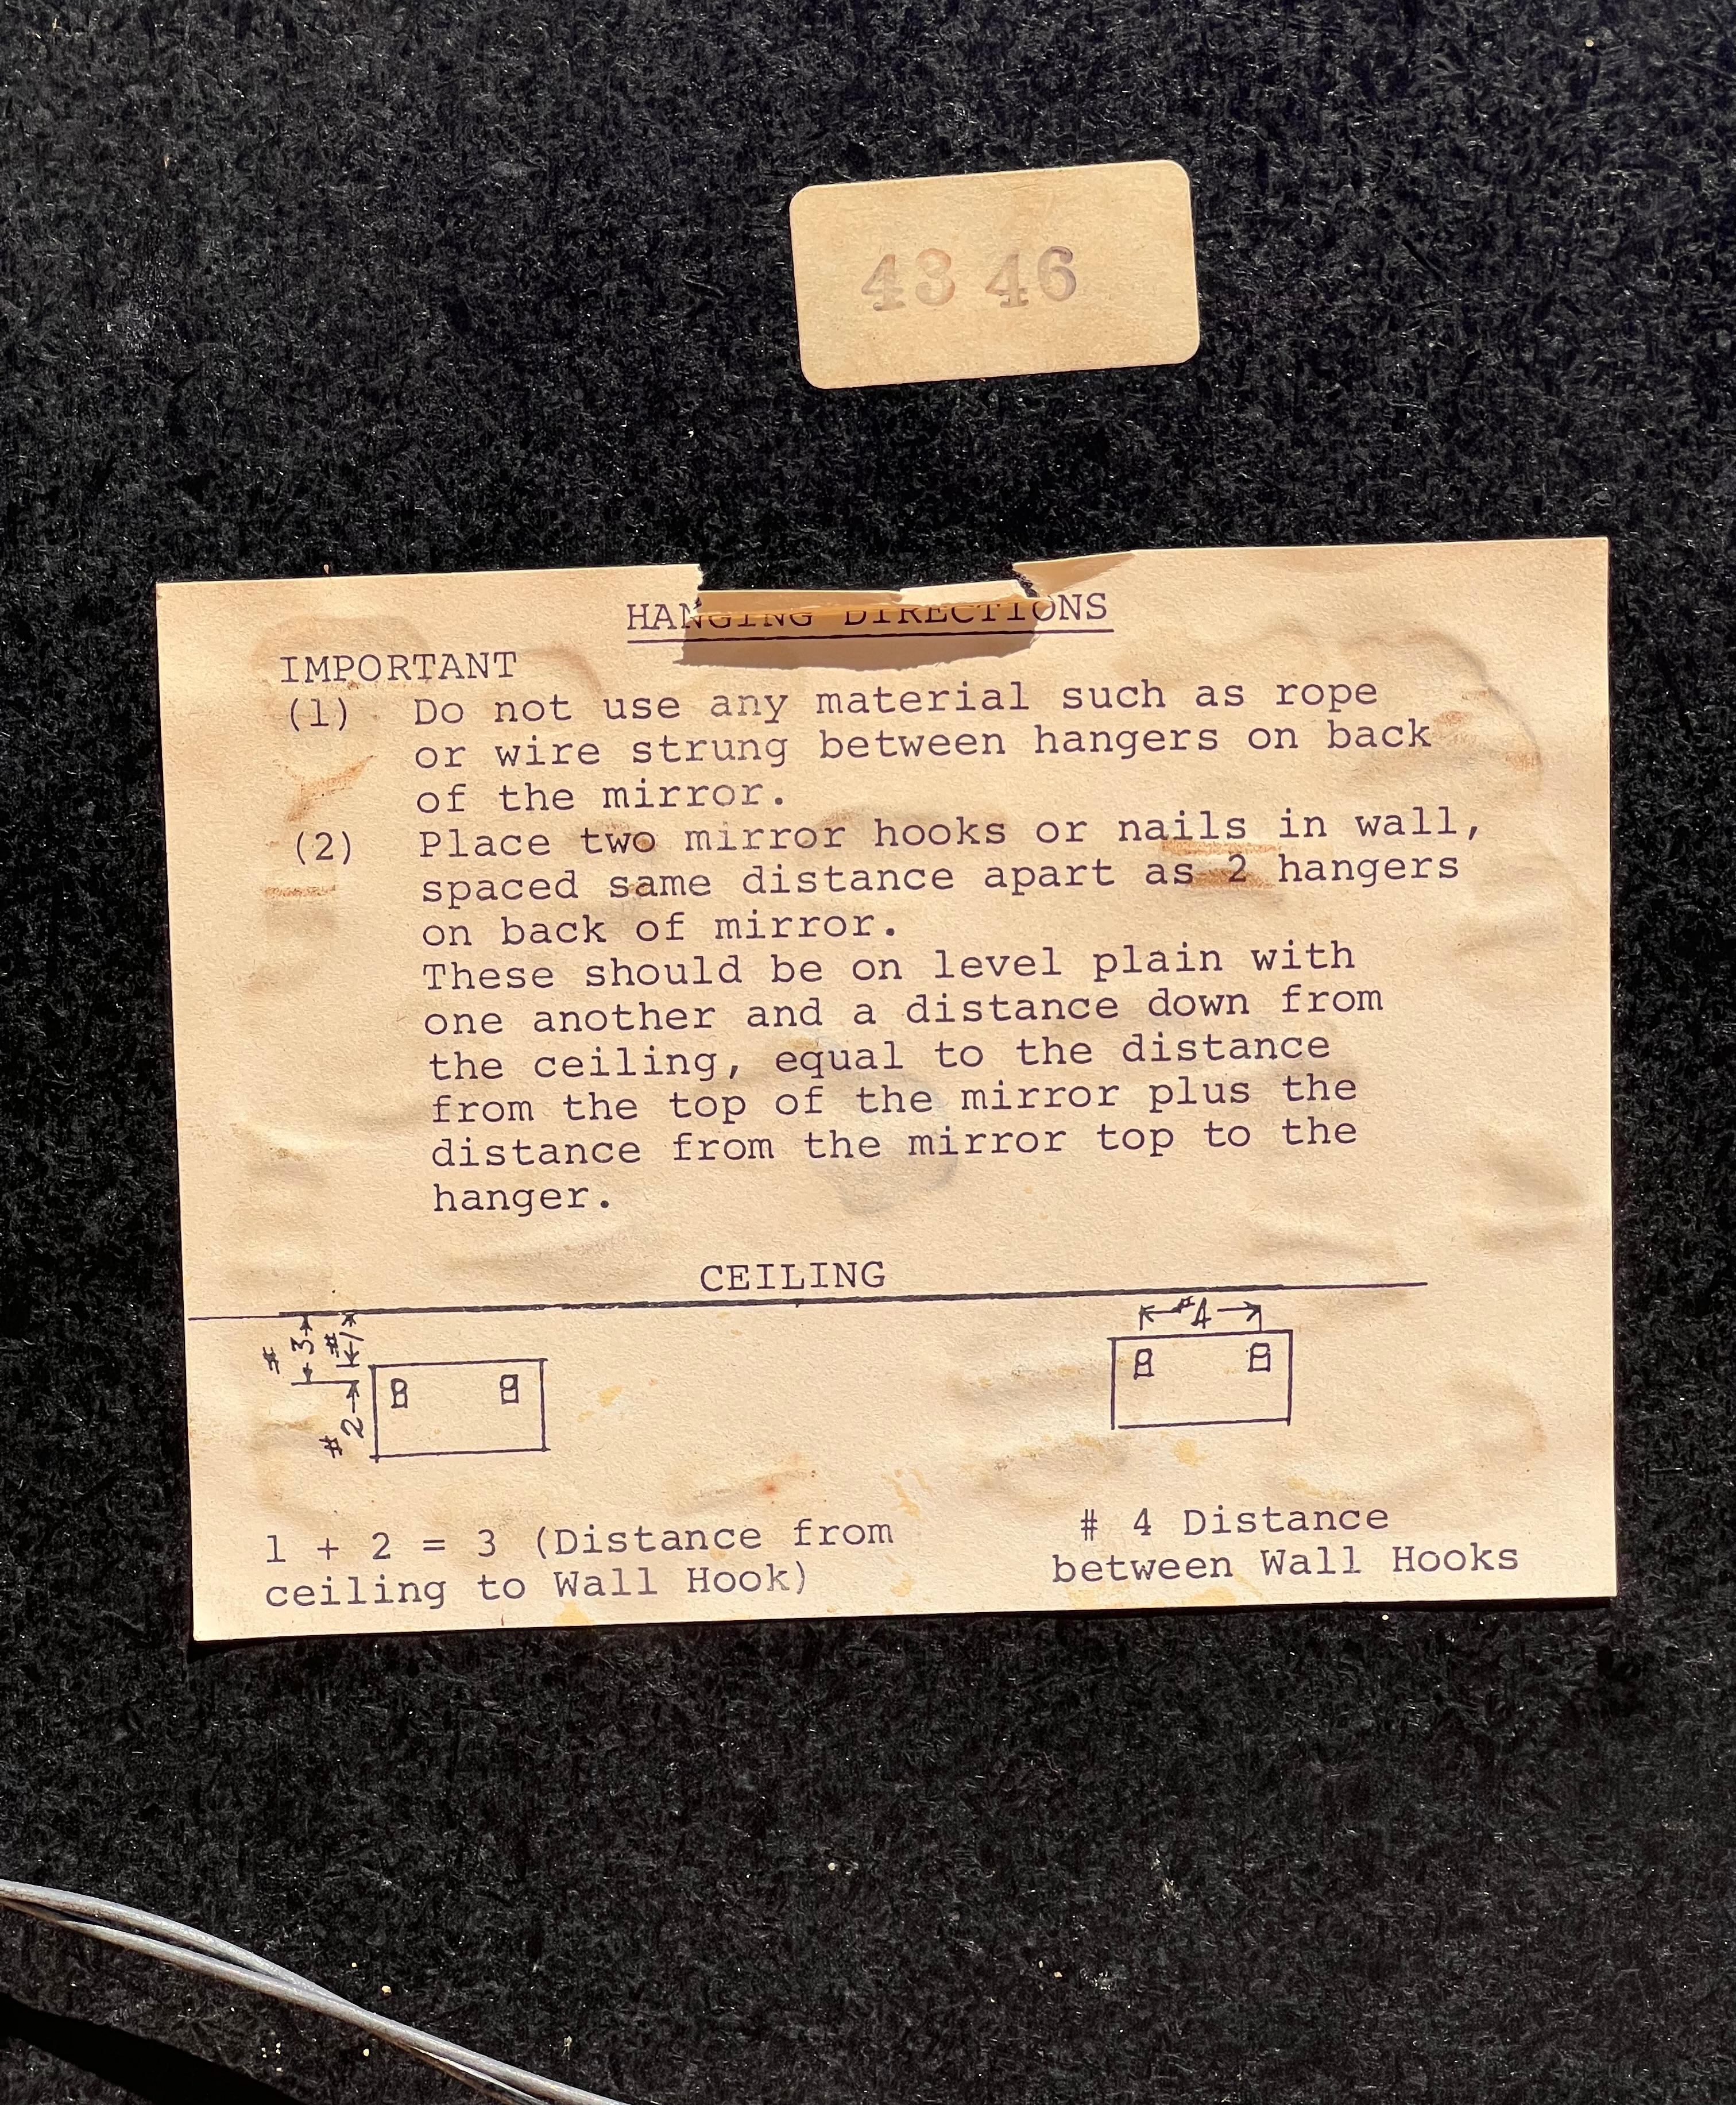 43 46
HANGING DIRECTIONS
IMPORTANT
(1) Do not use any material such as rope
or wire strung between hangers on back
of the mirror.
(2) Place two mirror hooks or nails in wall,
spaced same distance apart as 2 hangers
on back of mirror.
These should be on level plain with
one another and a distance down from
the ceiling, equal to the distance
from the top of the mirror plus the
distance from the mirror top to the
hanger.
CEILING
#3 #1
#2
#4
1 + 2 = 3 (Distance from
ceiling to Wall Hook)
# 4 Distance
between Wall Hooks